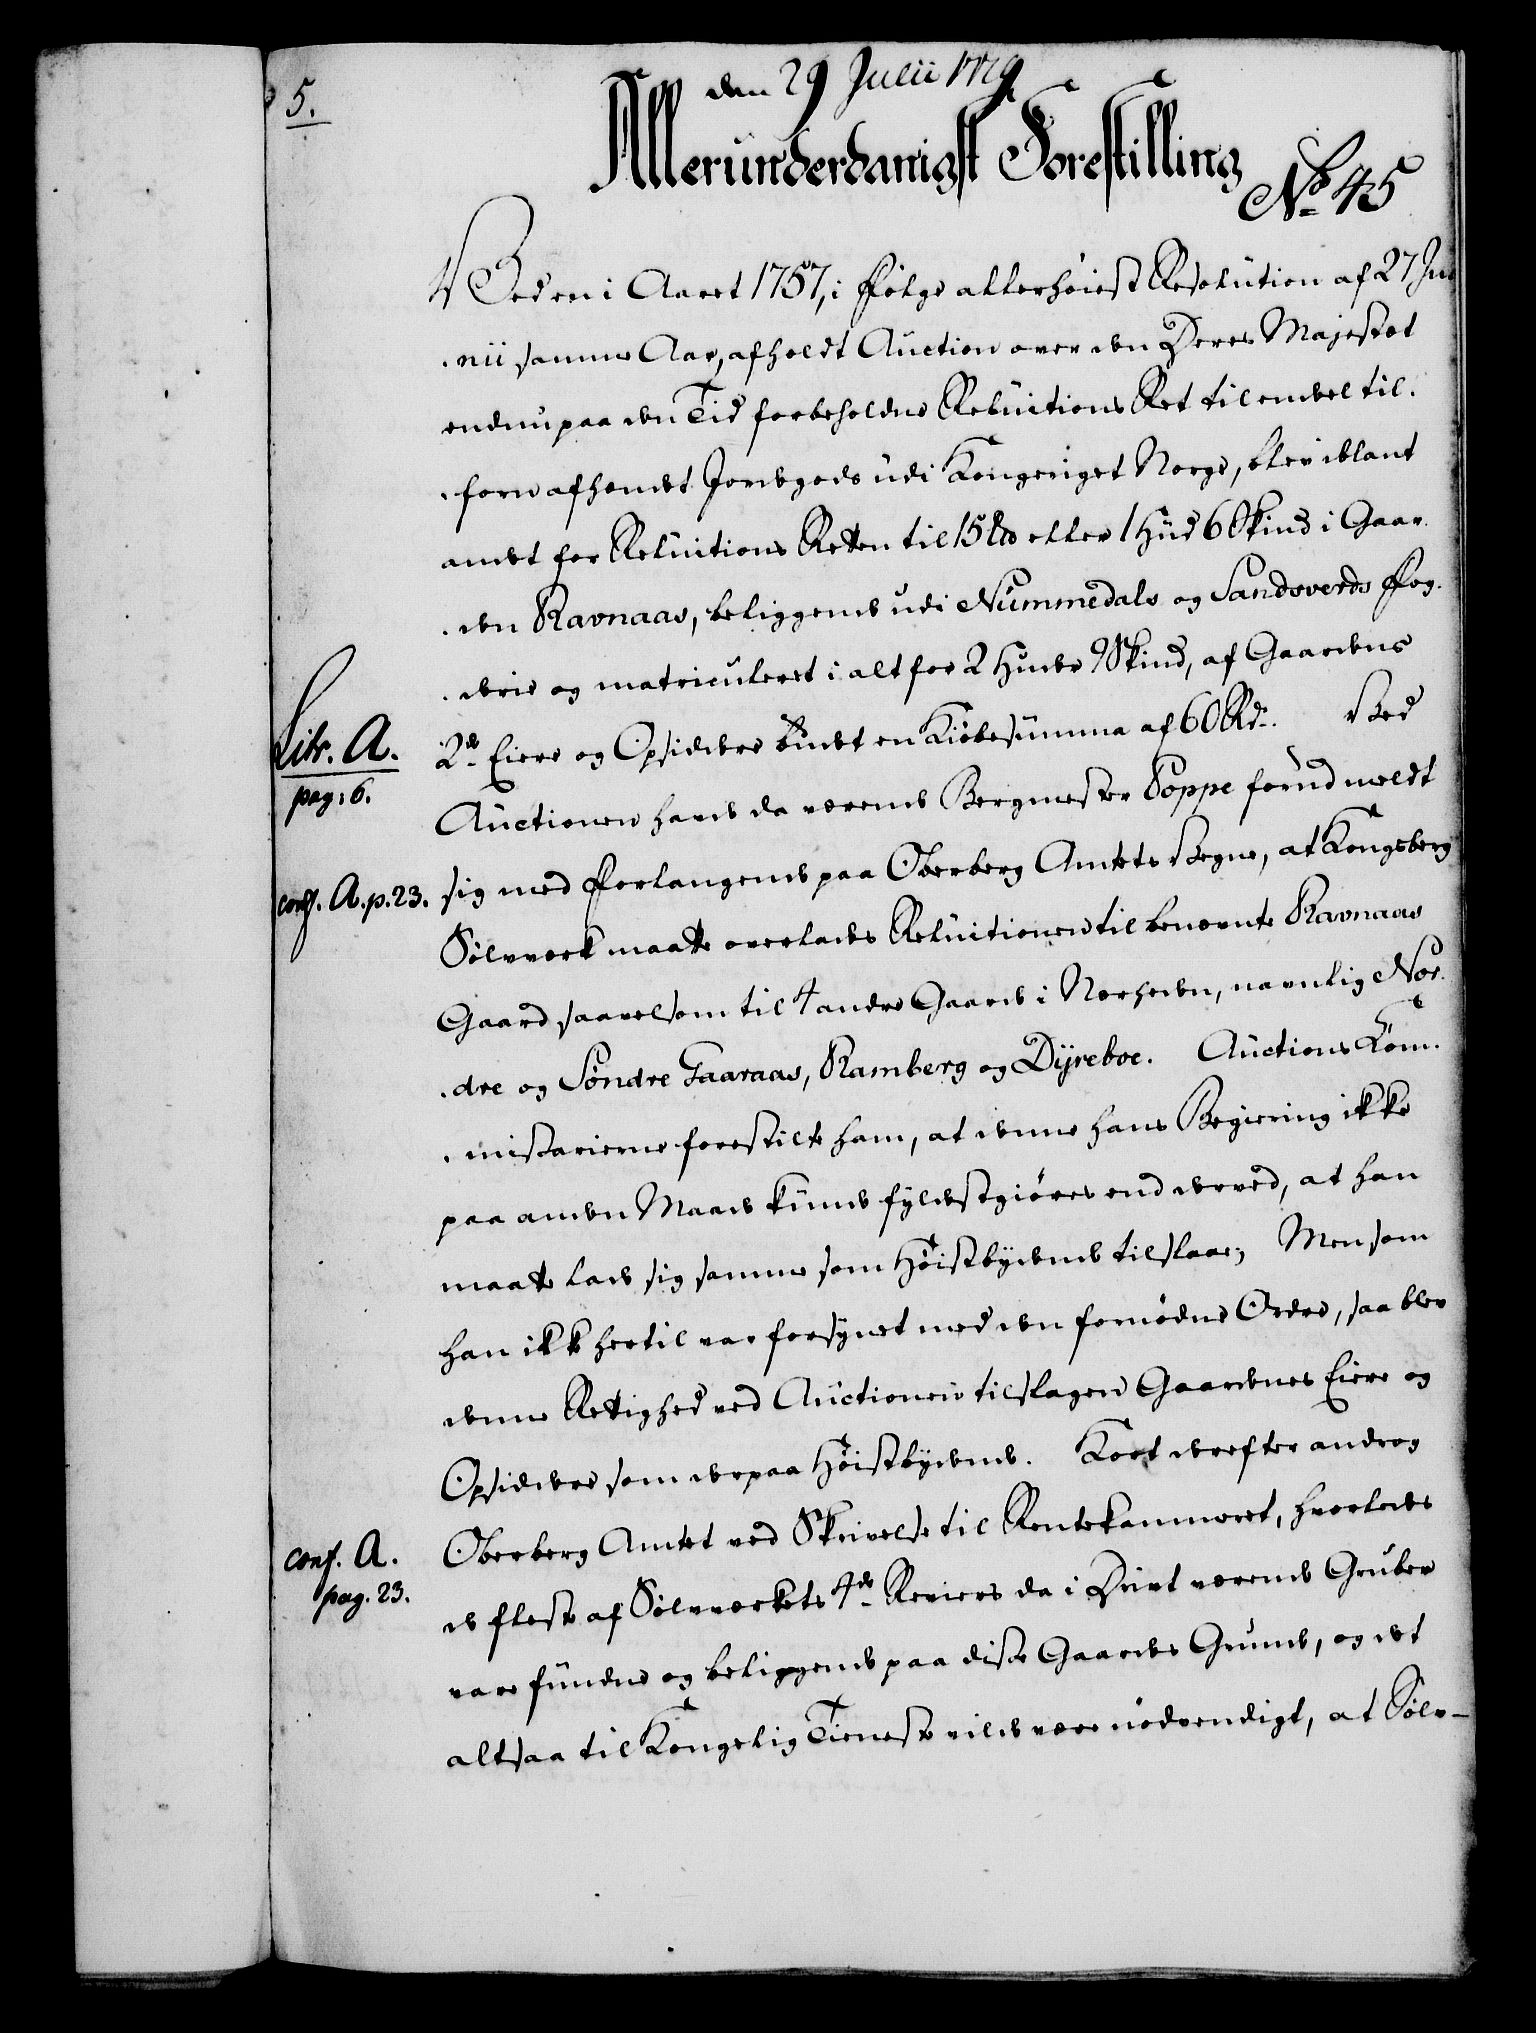 5.
den 29 Julii 1779
Allerunderdanigst Forestilling
No 45
Ved en i Aaret 1757, i følge allerhöiest Resolution af 27 Ju
nii samme Aar, afholdt Auction over den Deres Majestæt
endnu paa den Tid forbeholdne Reluitions Ret til endeel til.
forn afhendt Jordegods udi Kongeriget Norge, blev iblant
andet for Reluitions Retten til 15 Lid eller 1 Hud 6 Skind i Gaar.
den Ravnaas, beliggende udi Nummedals og Sandsverds Fog.
derie og matriculeret i alt for 2 Huder 9 Skind, af Gaardens
2de Eiere og Opsiddere budet en Kiöbesumma af 60 Rdr. Ved
Litr. A.
pag: 6.
Auctionen havde da værende Bergmester Poppe forud meldt
sig med Forlangende paa Oberberg Amtets Vegne, at Kongsberg
conf. A. p. 23.
Sölvverk maatte overlades Reluitionen til benævnte Ravnaas
Gaard saavelsom til 4 andre Gaarde i Nærheden, navnlig Nor.
dre og Söndre Taaraas, Ramberg og Dÿreboe. Auctions Com.
missarierne forestilte ham, at denne hans Begiering ikke
paa anden Maade kunde fyldestgiöres end derved, at han
maatte lade sig samme som Höistbydende tilslaae; Men som
han ikke hertil var forsynet med den fornödne Ordre, saa blev
denne Rettighed ved Auctionen tilslagen Gaardenes Eiere og
Opsiddere som derpaa Höistbydende. Kort derefter androg
Oberberg Amtet ved Skrivelse til Rentekammeret, hvorledes
conf. A.
pag. 23.
de fleste af Sölvverkets 4de Reviers da i Drivt værende Gruber
vare fundne og beliggende paa disse Gaardes Grund, og det
altsaa til Kongelig Tieneste vilde være nödvendigt, at Sölv-